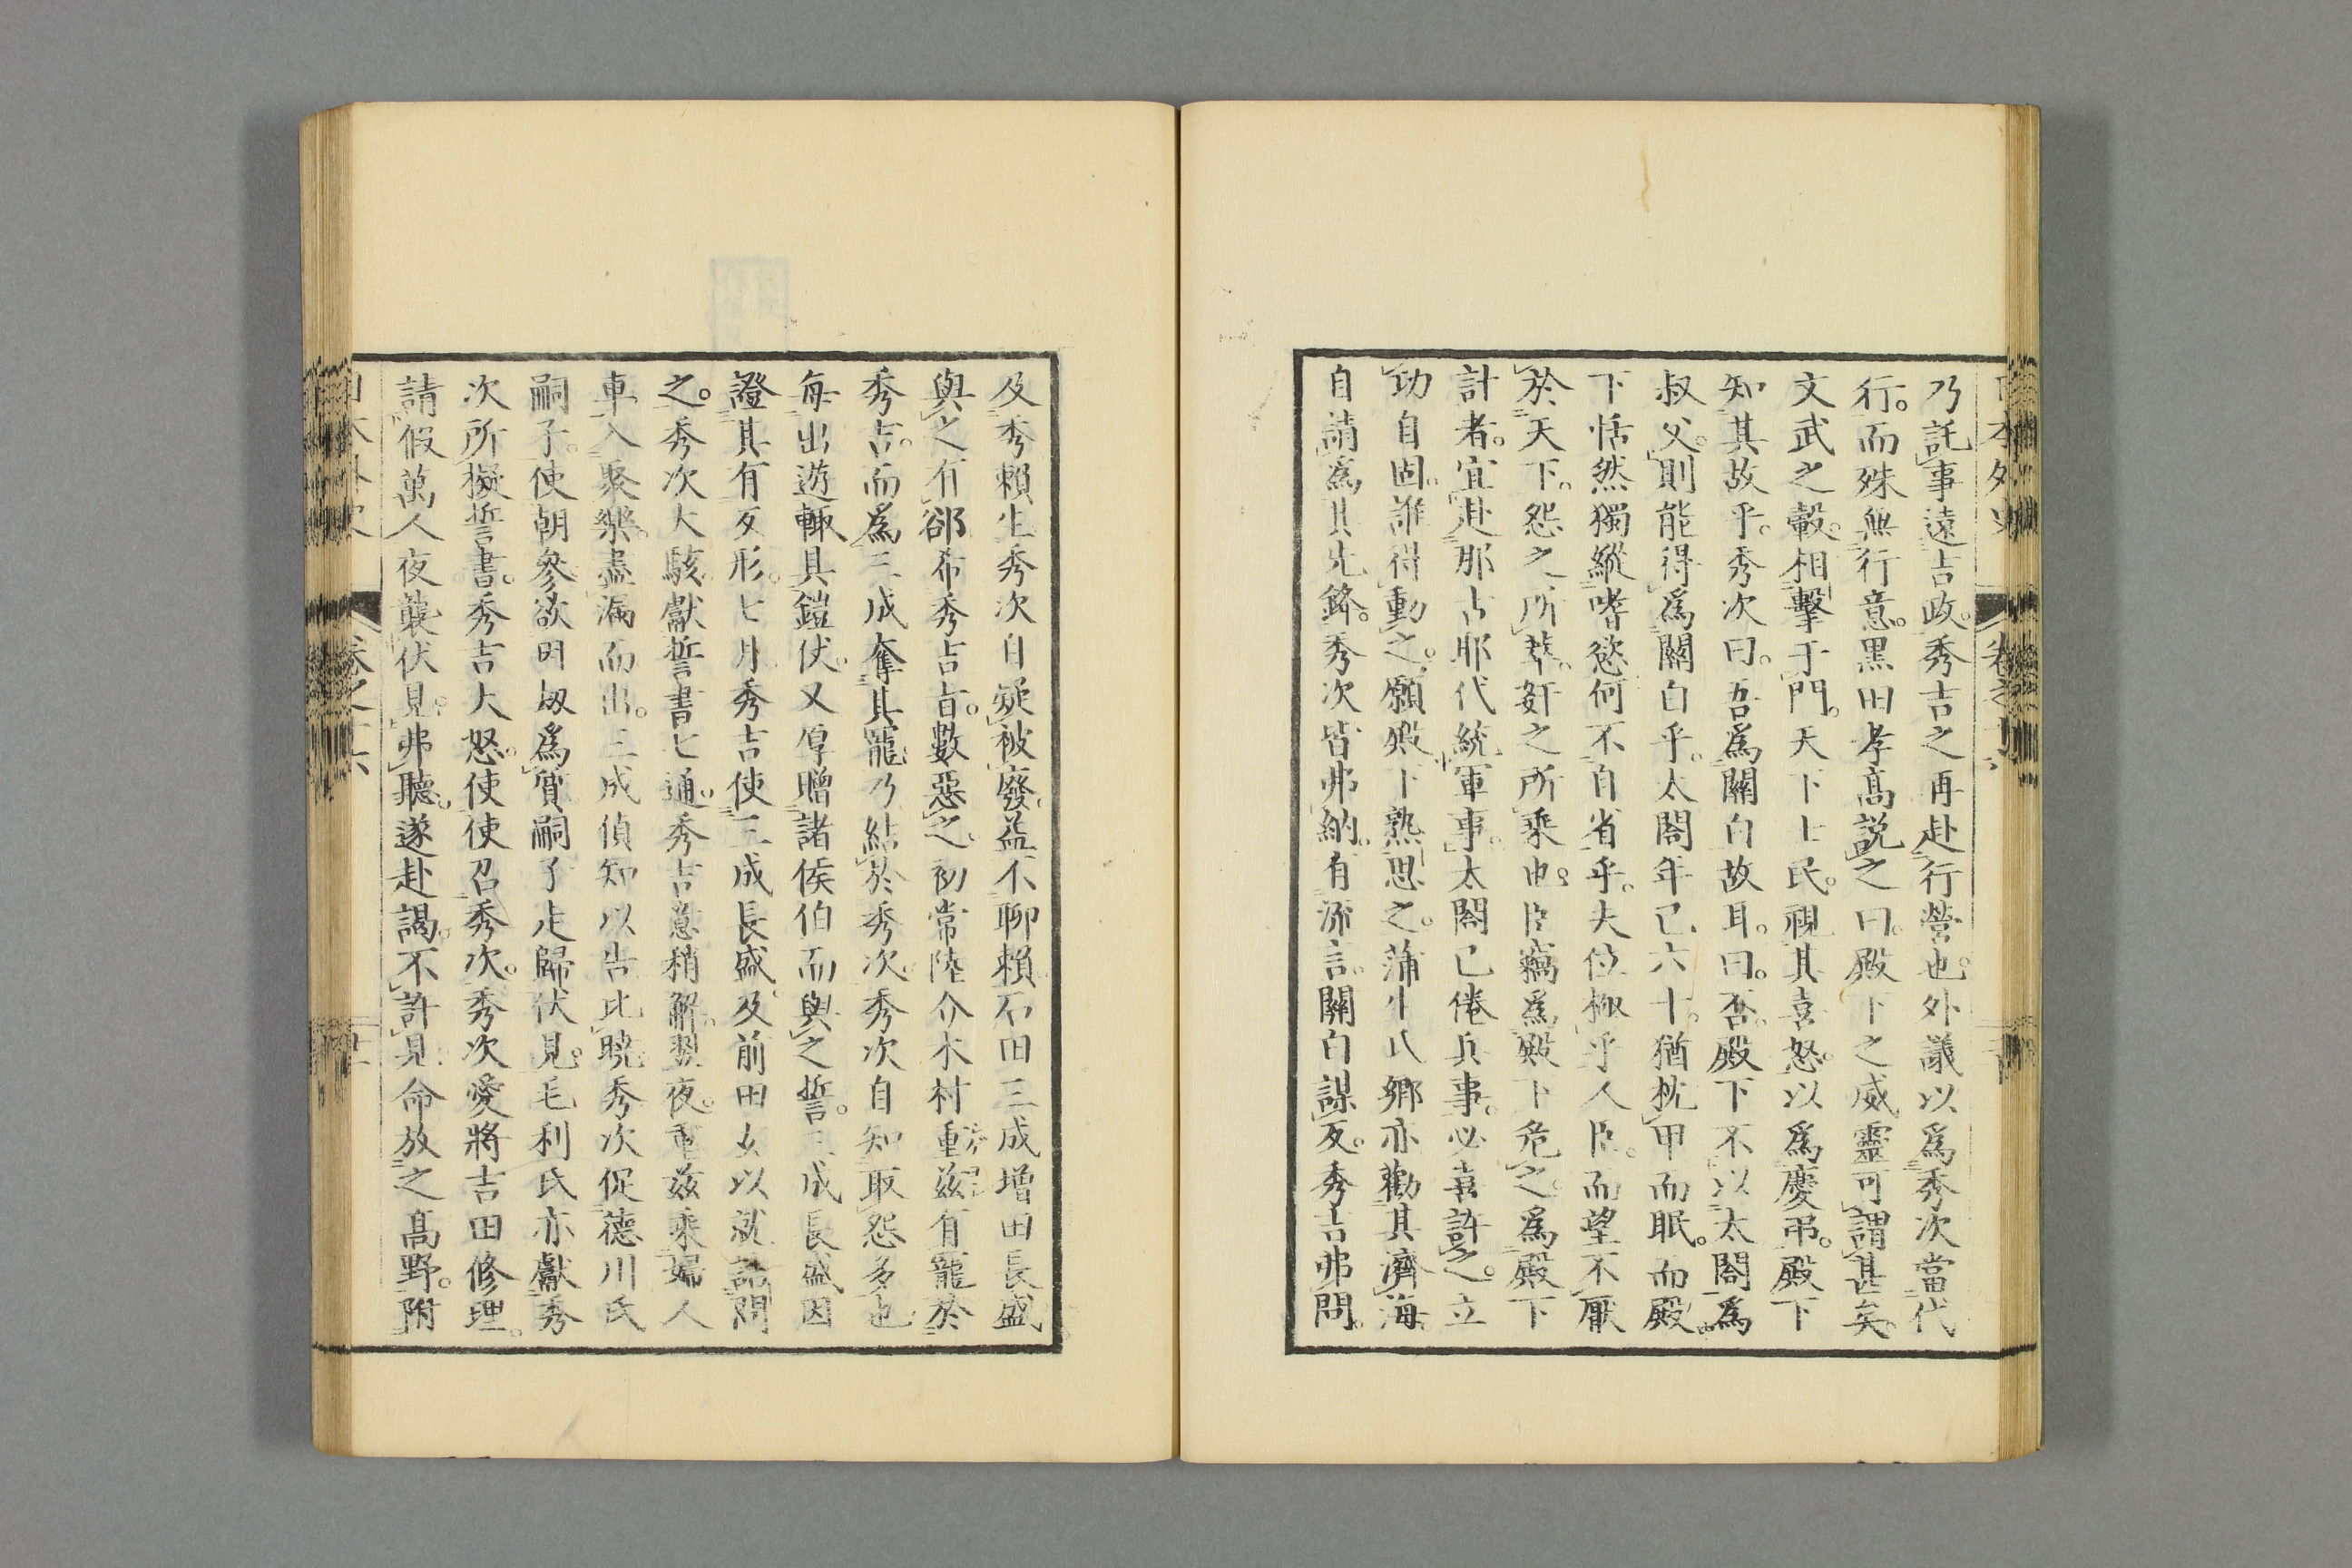 日本外史 卷之十六
乃託事遠吉政。秀吉之再赴行營也。外議以爲秀次當代
行。而殊無行意。黒田孝高説之曰。殿下之威靈可謂甚矣。
文武之轂。相撃于門。天下士民。視其喜怒。以爲慶弔。殿下
知其故乎。秀次曰。吾爲關白故耳。曰。否。殿下不以太閤爲
叔父。則能得爲關白乎。太閤年已六十。猶枕甲而眠。而殿
下恬然獨縱嗜慾。何不自省乎。夫位極乎人臣。而望不厭
於天下。怨之所萃。奸之所乘也。臣竊爲殿下危之。爲殿下
計者。宜赴那古耶代統軍事。太閤已倦兵事。必喜許之。立
功自固。誰得動之。願殿下熟思之。蒲生氏郷亦勸其濟海。
自請爲其先鋒。秀次皆弗納。有流言。關白謀反。秀吉弗問。
及秀頼生。秀次自疑被廢。益不聊頼。石田三成増田長盛
與之有郤。希秀吉旨。數惡之。初常陸介木村重茲有寵於
秀吉。而爲三成奪其寵。乃結於秀次。秀次自知取怨多也。
毎出遊。輙具鎧仗。又厚贈諸侯伯而與之誓。三成長盛因
證其有反形。七月。秀吉使三成長盛。及前田玄以就詰問
之。秀次大駭。獻誓書七通。秀吉意稍解。翌夜。重茲乘婦人
車入聚樂。盡漏而出。三成偵知以告。比曉。秀次促德川氏
嗣子。使朝參。欲因劫爲質。嗣子走歸伏見。毛利氏亦獻秀
次所擬誓書。秀吉大怒。使使召秀次。秀次愛將吉田修理。
請假萬人夜襲伏見。弗聽。遂赴謁。不許見。命放之高野。附
日本外史 卷之十六